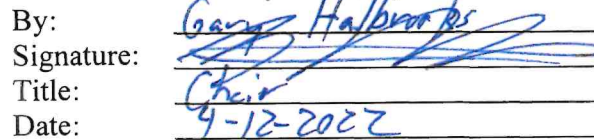 By: Gary Halbrooks
Signature:
Title: Chair
Date: 4-12-2022